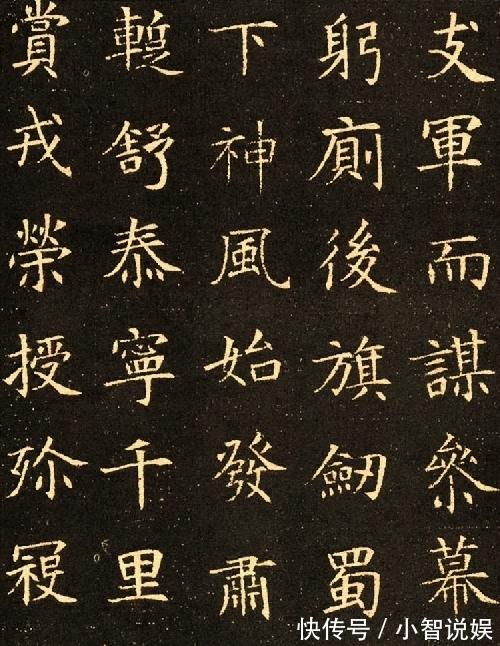 支軍而謀參幕
躬廁後旗劒蜀
下神風始發肅
蹔舒泰寧千里
賞戎榮授殄寇
快传号 / 小智说娱